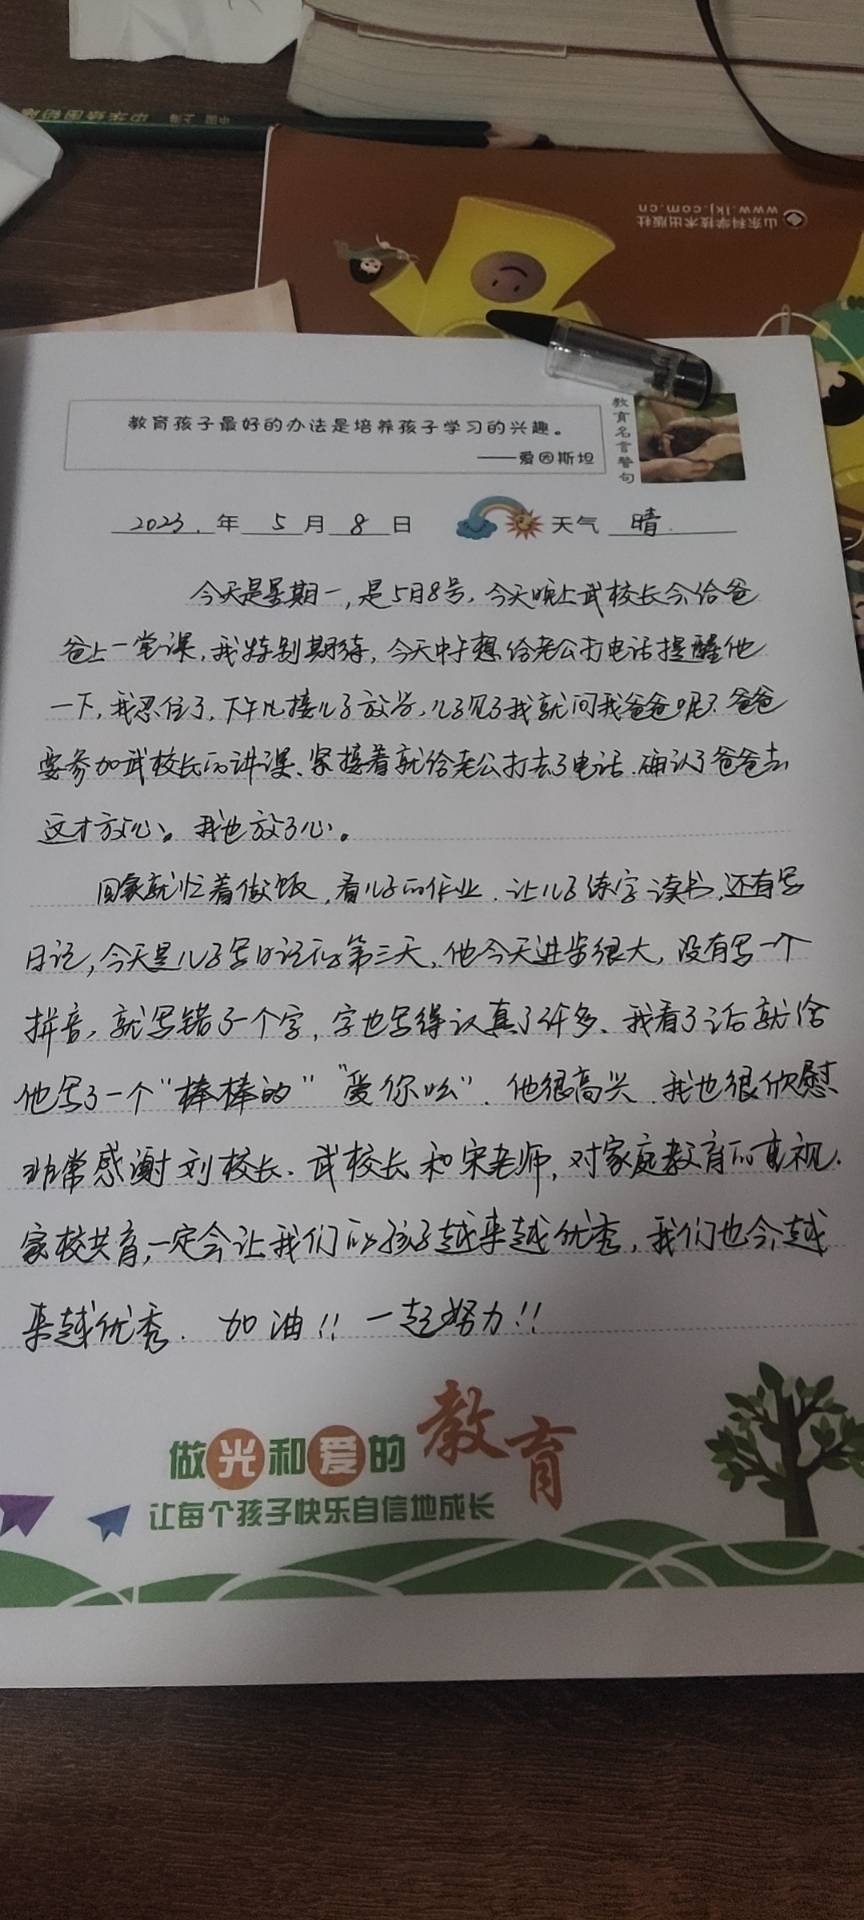 中华绘图铅笔 中国 上海
山东科学技术出版社
www.lkj.com.cn
教育孩子最好的办法是培养孩子学习的兴趣。
——爱因斯坦
教育名言警句
2023.年 5 月 8 日 天气 晴
今天是星期一,是5月8号,今天晚上武校长会给爸
爸上一堂课,我特别期待,今天中午想给老公打电话提醒他
一下,我忍住了,下午儿接儿子放学,儿子见了我就问我爸爸呢?爸爸
要参加武校长的讲课、紧接着就给老公打去了电话.确认了爸爸去
这才放心。我也放了心。
回家就忙着做饭,看儿子的作业.让儿子练字读书,还有写
日记,今天是儿子写日记的第三天,他今天进步很大,没有写一个
拼音,就写错了一个字,字也写得认真了许多、我看了之后就给
他写了一个"棒棒的""爱你呦".他很高兴.我也很欣慰
非常感谢刘校长.武校长和宋老师,对家庭教育的重视.
家校共育,一定会让我们的孩子越来越优秀,我们也会越
来越优秀.加油!!一起努力!!
做光和爱的教育
让每个孩子快乐自信地成长